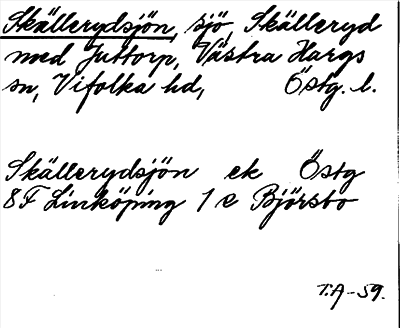 Skällerydsjön, sjö, Skälleryd
med Juttorp, Västra Hargs
sn, Vifolka hd, Östg. l.
Skällerydsjön ek Östg
8F Linköping 1 e Björsbo
T.A-59.